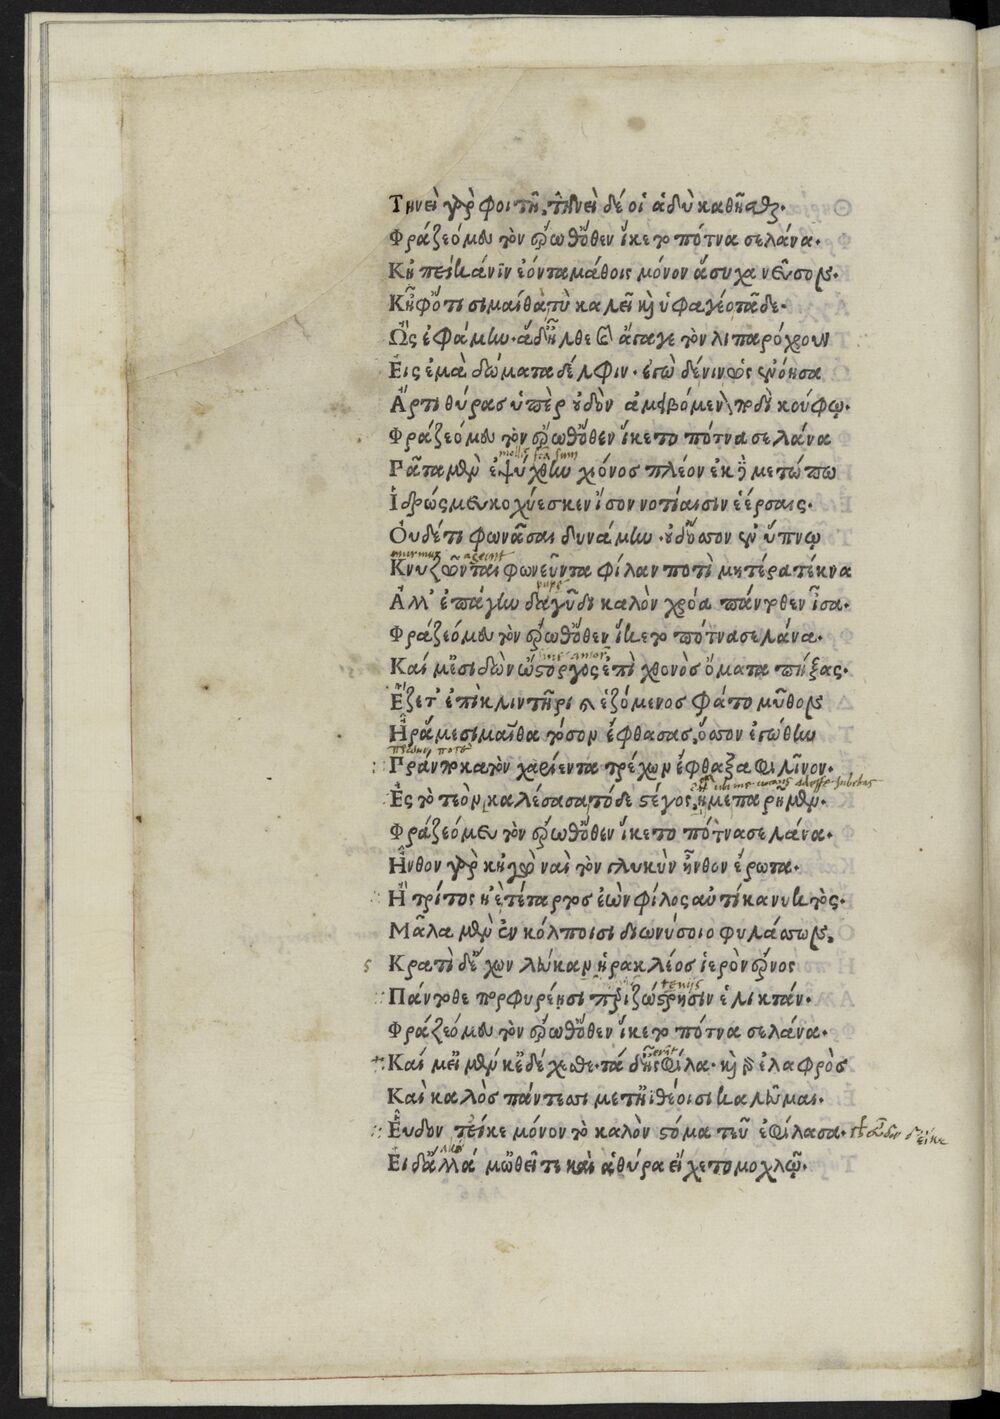 Τηνεὶ γὰρ φοιτῆ, τῆνεὶ δέ οἱ ἁδὺ καθῆσθαι.
Φράζεό μευ τὸν ἔρωθ' ὅθεν ἵκετο πότνα σελάνα.
Κἠπεί κά νιν ἐόντα μάθοις μόνον ἅσυχα νεῦσον.
Κἦφ' ὅτι σιμαίθα τὺ καλεῖ καὶ ὑφαγέο τᾶδε.
Ὣς ἐφάμην. ἁ δ' ἦλθε καὶ ἄγαγε τὸν λιπαρόχρουν
Εἰς ἐμὰ δώματα δέλφιν. ἐγὼ δέ νιν ὡς ἐνόησα
Ἄρτι θύρας ὑπὲρ οὐδὸν ἀμειβόμενον ποδὶ κούφῳ.
Φράζεό μευ τὸν ἔρωθ' ὅθεν ἵκετο πότνα σελάνα
mollis
Πᾶσα μὲν ἐψύχθην χιόνος πλέον ἐκ δὲ μετώπω
Ἱδρώς μευ κοχύεσκεν ἴσον νοτίαισιν ἐέρσαις.
Οὐδέ τι φωνᾶσαι δυνάμην. οὐδ' ὅσσον ἐν ὕπνῳ
Κνυζῶνται φωνεῦντα φίλαν ποτὶ μητέρα τέκνα
Ἀλλ' ἐπάγην δαγῦδι καλὸν χρόα πάντοθεν ἶσα.
Φράζεό μευ τὸν ἔρωθ' ὅθεν ἵκετο πότνα σελάνα.
Καί μ' ἐσιδὼν ὥστοργος ἐπὶ χθονὸς ὄματα πήξας.
Ἕζετ' ἐπὶ κλιντῆρι καὶ ἑζόμενος φάτο μῦθον
Ἦ ῥά με σιμαῖθα τόσον ἔφθασας, ὅσσον ἐγώ θην
Πρᾶν ποκα τὸν χαρίεντα τρέχων ἔφθαξα φιλῖνον.
Ἐς τὸ τεὸν καλέσασα τόδε στέγος, ἤ με παρῆμεν.
Φράζεό μευ τὸν ἔρωθ' ὅθεν ἵκετο πότνα σελάνα.
Ἦνθον γὰρ κἠγὼ ναὶ τὸν γλυκὺν ἦνθον ἔρωτα.
Ἢ τρίτος ἠὲ τέταρτος ἐὼν φίλος αὐτίκα νυκτὸς.
Μᾶλα μὲν ἐν κόλποισι διωνύσοιο φυλάσσων,
Κρατὶ δ' ἔχων λεύκαν ἡρακλέος ἱερὸν ἔρνος
Πάντοθε πορφυρέῃσι περιζώστρῃσιν ἑλικτάν.
Φράζεό μευ τὸν ἔρωθ' ὅθεν ἵκετο πότνα σελάνα.
Καί μ' εἰ μέν κ' ἐδέχεσθε. τά δ' ἦς φίλα. καὶ γὰρ ἐλαφρὸς
Καὶ καλὸς πάντεσσι μετ' ἠϊθέοισι καλεῦμαι.
Εὗδον τ' εἴκε μόνον τὸ καλὸν στόμα τεῦ ἐφίλασα.
Εἰ δ' ἄλλά μ' ὠθεῖτε καὶ ἁ θύρα εἴχετο μοχλῷ.